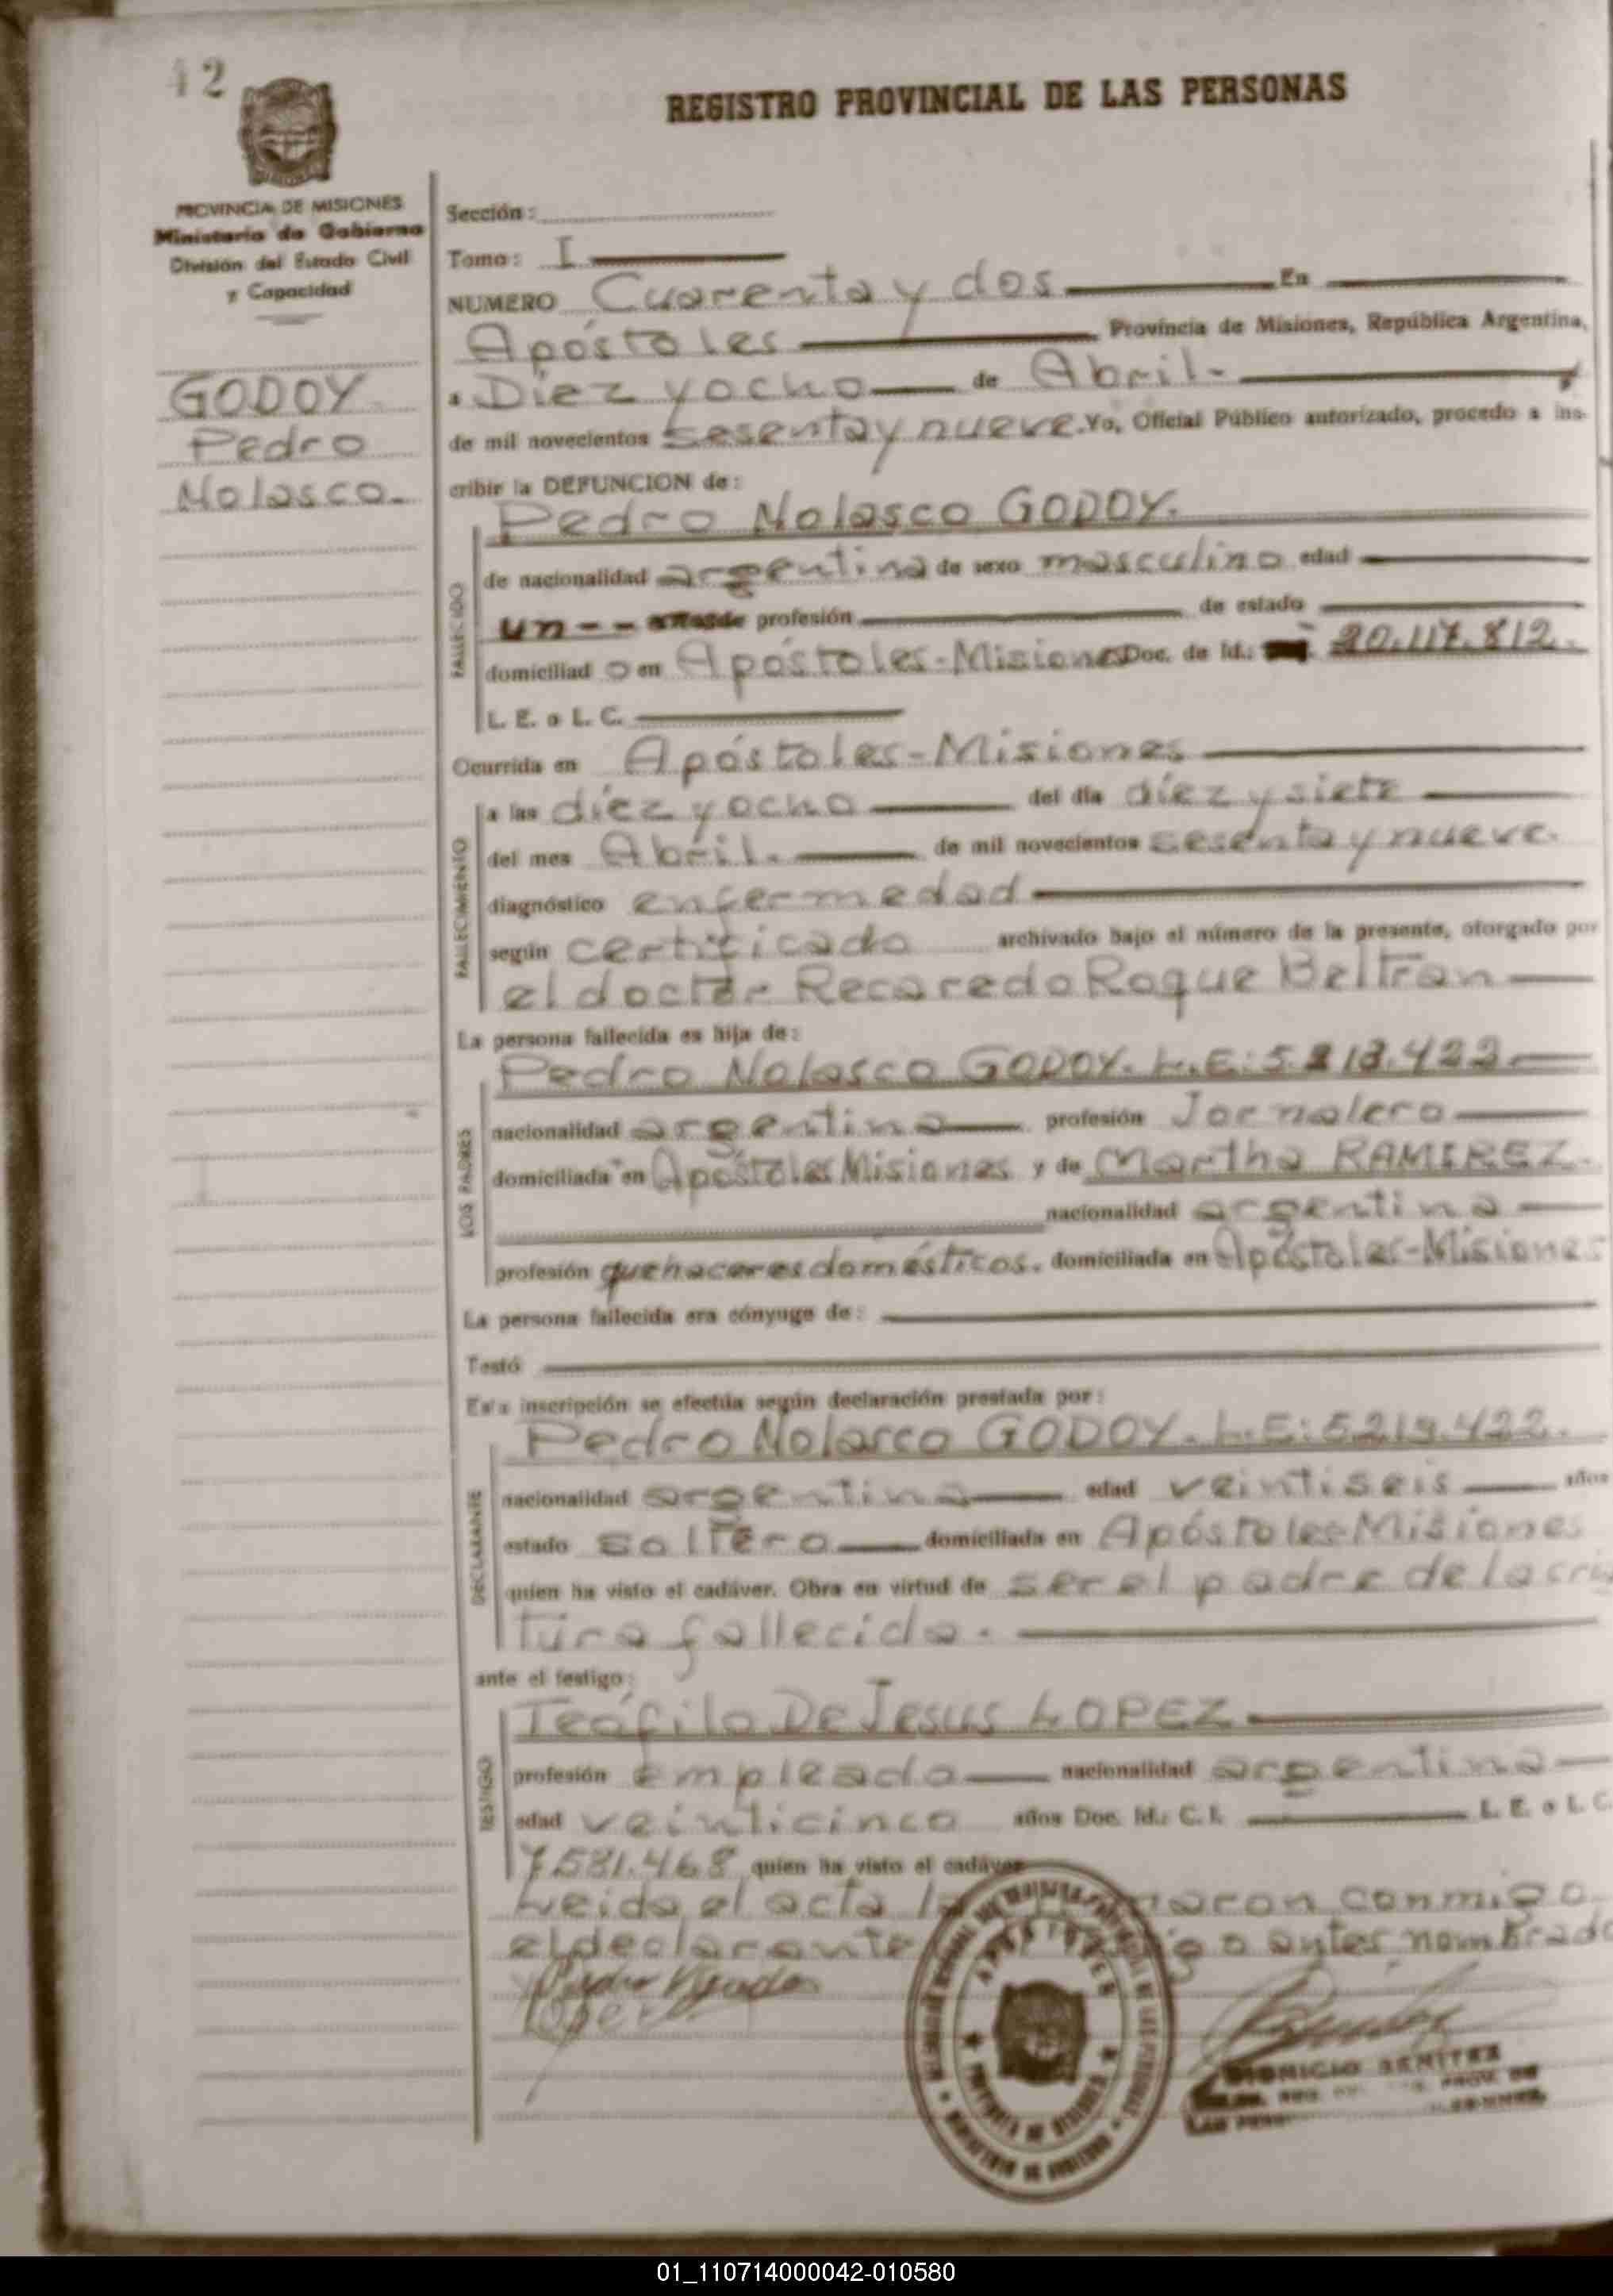 42
REGISTRO PROVINCIAL DE LAS PERSONAS
PROVINCIA DE MISIONES
Ministerio de Gobierno
División del Estado Civil
y Capacidad
GODOY
Pedro
Nolasco.-
Sección:
Tomo: I
NUMERO Cuarenta y dos En
Apóstoles Provincia de Misiones, República Argentina,
a Diez y ocho de Abril.-
de mil novecientos sesenta y nueve. Yo, Oficial Público autorizado, procedo a ins-
cribir la DEFUNCION de:
Pedro Nolasco GODOY.
FALLECIDO
de nacionalidad argentina de sexo masculino edad
un -- profesión de estado
domiciliado en Apóstoles-Misiones Doc. de Id.: 20.117.812.
L. E. o L. C.
Ocurrida en Apóstoles-Misiones
FALLECIMIENTO
a las diez y ocho del día diez y siete
del mes Abril.- de mil novecientos sesenta y nueve.
diagnóstico enfermedad
según certificado archivado bajo el número de la presente, otorgado por
el doctor Recaredo Roque Beltran
La persona fallecida es hija de:
LOS PADRES
Pedro Nolasco GODOY. L.E: 422
nacionalidad argentina profesión Jornalero
domiciliada en Apóstoles Misiones y de Martha RAMIREZ.
nacionalidad argentina
profesión quehaceres domésticos. domiciliada en Apóstoles-Misiones
La persona fallecida era cónyuge de:
Testó
Esta inscripción se efectúa según declaración prestada por:
DECLARANTE
Pedro Nolasco GODOY. L.E: 5.219.422.
nacionalidad argentina edad veintiseis años
estado soltero domiciliada en Apóstoles-Misiones
quien ha visto el cadáver. Obra en virtud de ser el padre de la cria
tura fallecida.
ante el testigo:
TESTIGO
Teófilo De Jesus LOPEZ
profesión empleado nacionalidad argentina
edad veinticinco años Doc. Id.: C. I. L. E. o L. C.
7.581.468 quien ha visto el cadáver
Leida el acta la conmigo
el declarante antes nombrado
Lopez
APOSTOLES
PROVINCIA DE MISIONES
MINISTERIO DE GOBIERNO
DIONICIO BENITEZ
01_110714000042-010580